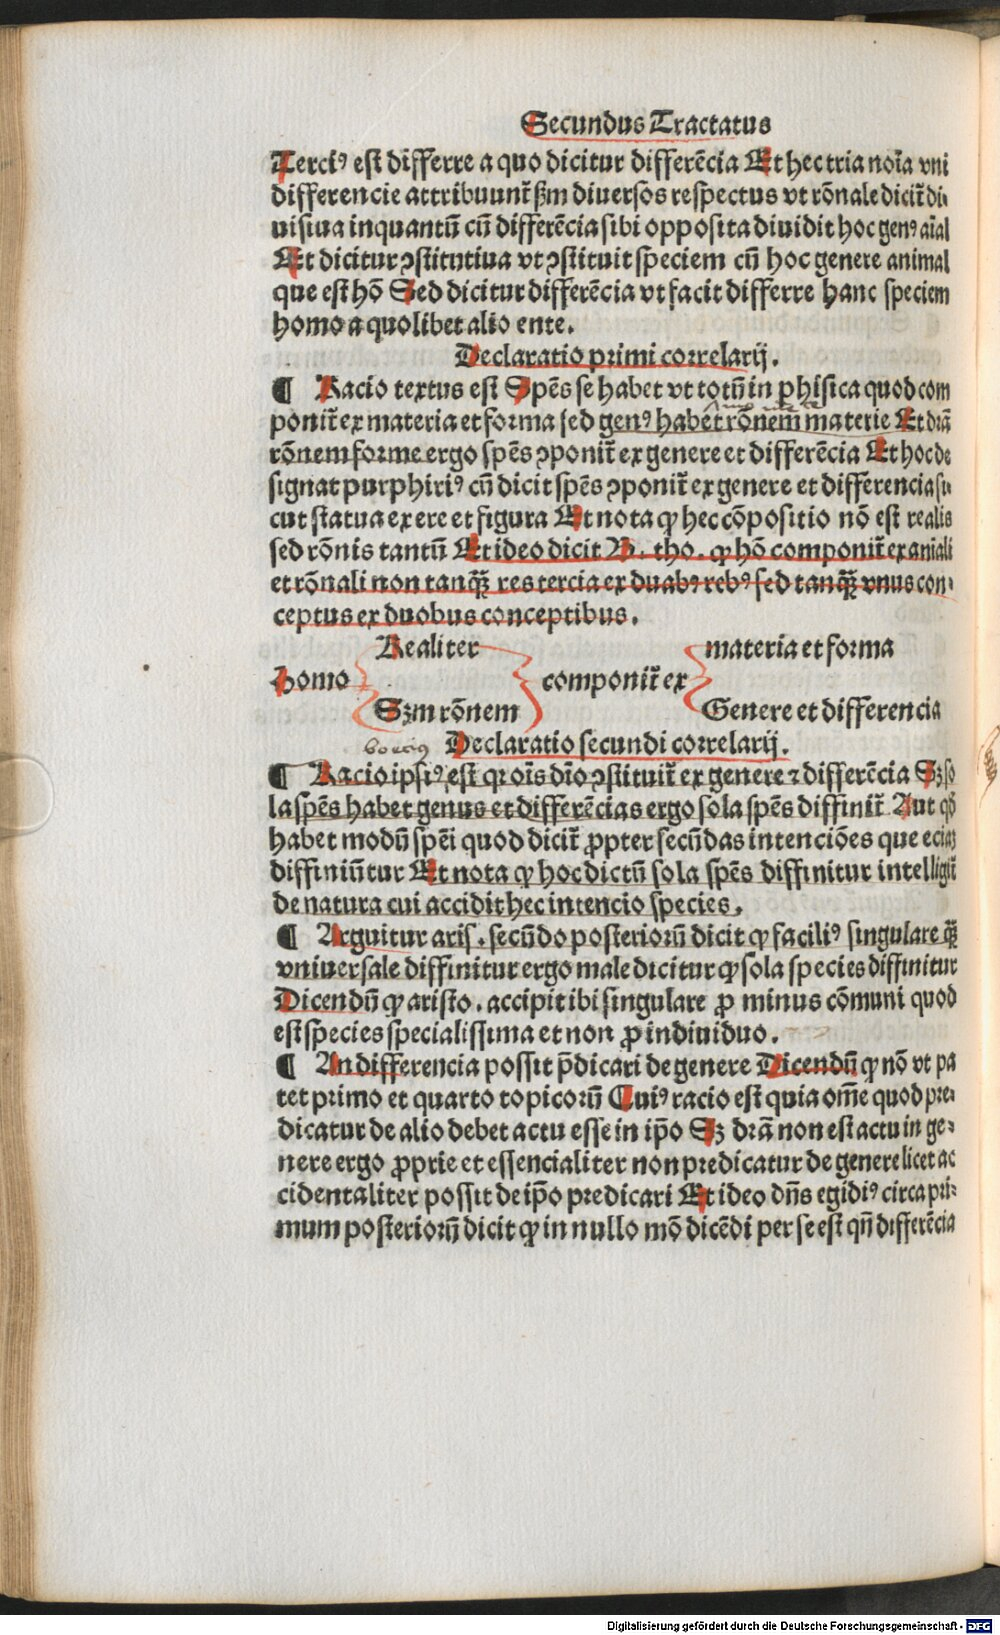 Secundus Tractatus
Terciꝰ est differre a quo dicitur differẽcia Et hec tria noĩa vni
differencie attribuunt̃ ẞm diuersos respectus vt rõnale dicit̃ di⸗
uisiua inquantũ cũ differẽcia sibi opposita diuidit hoc genꝰ aĩal
Et dicitur ꝯstitutiua vt ꝯstituit speciem cũ hoc genere animal
que est hõ Sed dicitur differẽcia vt facit differre hanc speciem
homo a quolibet alio ente.
Declaratio primi correlarij.
¶ Racio textus est Spẽs se habet vt totũ in phisica quod com
ponit̃ ex materia et forma sed genꝰ habet rõnem materie Et drã
rõnem forme ergo spẽs ꝯponit̃ ex genere et differẽcia Et hoc de
signat purphiriꝰ cũ dicit spẽs ꝯponit̃ ex genere et differencia si⸗
cut statua ex ere et figura Et nota ꝙ hec cõpositio nõ est realis
sed rõnis tantũ Et ideo dicit B. tho. ꝙ hõ componit̃ ex aniali
et rõnali non tanq̃ȝ res tercia ex duabꝰ rebꝰ sed tanq̃ȝ vnus con⸗
ceptus ex duobus conceptibus.
Realiter materia et forma
Homo componit̃ ex
Sȝm rõnem Genere et differencia
boecius
Declaratio secundi correlarij.
¶ Racio ipsiꝰ est qr oĩs dĩo ꝯstituit̃ ex genere ⁊ differẽcia Sȝ so
la spẽs habet genus et differẽcias ergo sola spẽs diffinit̃ Aut qð
habet modũ spẽi quod dicit̃ ꝓpter secũdas intenciões que eciaȝ
diffiniũtur Et nota ꝙ hoc dictũ sola spẽs diffinitur intelligit̃
de natura cui accidit hec intencio species.
¶ Arguitur aris. secũdo posteriorũ dicit ꝙ faciliꝰ singulare q̃ȝ
vniuersale diffinitur ergo male dicitur ꝙ sola species diffinitur
Dicendũ ꝙ aristo. accipit ibi singulare ꝓ minus cõmuni quod
est species specialissima et non ꝓ indiuiduo.
¶ An differencia possit p̃dicari de genere Dicendũ ꝙ nõ vt pa
tet primo et quarto topicorũ Cuiꝰ racio est quia om̃e quod pre⸗
dicatur de alio debet actu esse in ip̃o Sȝ drã non est actu in ge⸗
nere ergo ꝓprie et essencialiter non predicatur de genere licet ac
cidentaliter possit de ip̃o predicari Et ideo dñs egidiꝰ circa pri⸗
mum posteriorũ dicit ꝙ in nullo mõ dicẽdi per se est qñ differẽcia
Digitalisierung gefördert durch die Deutsche Forschungsgemeinschaft - DFG